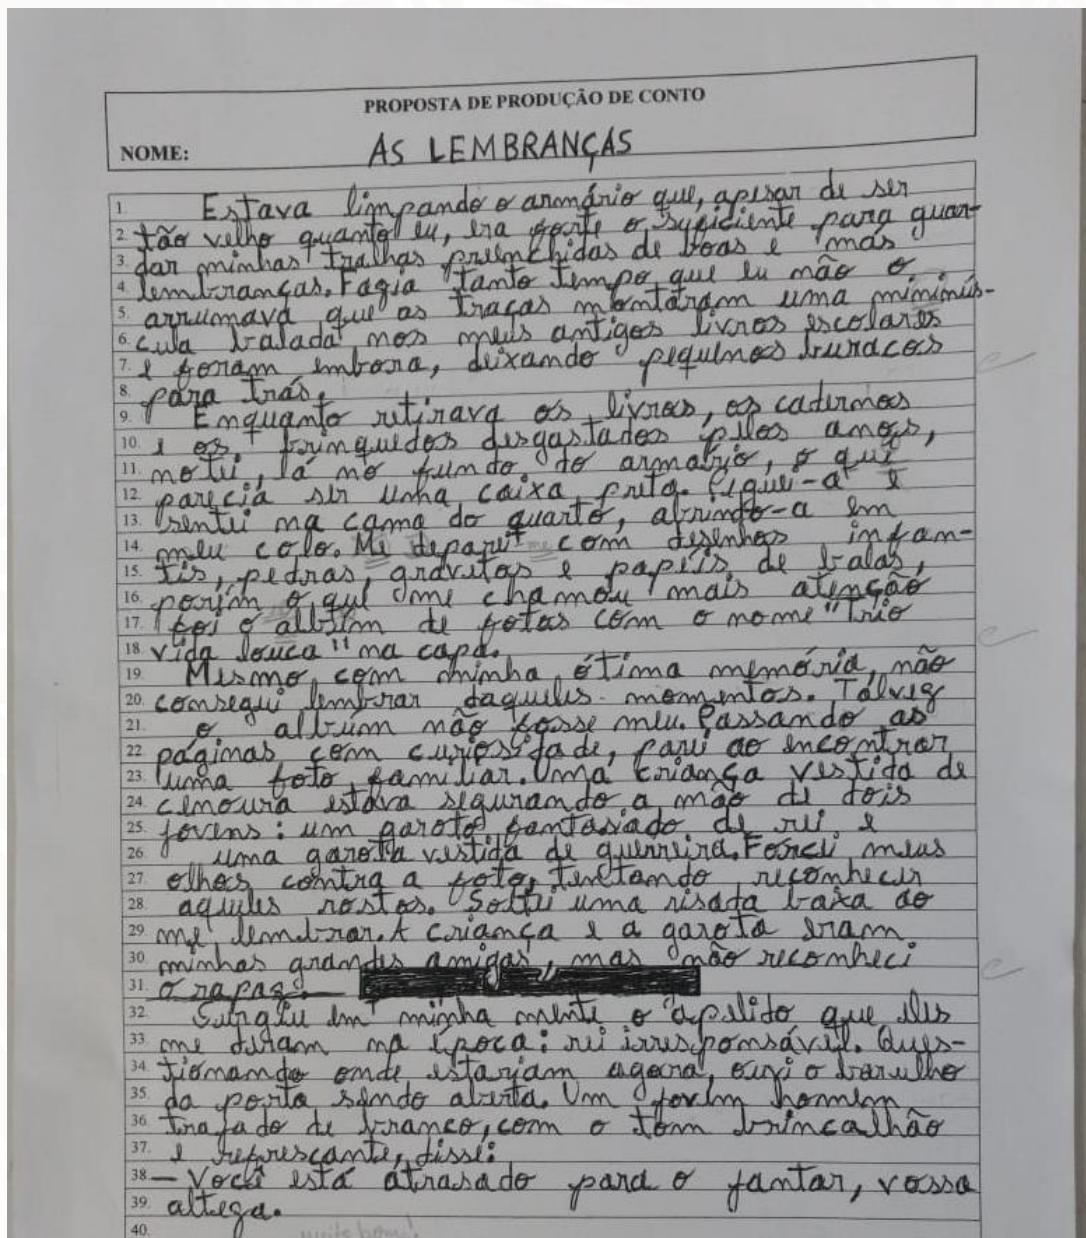 PROPOSTA DE PRODUÇÃO DE CONTO
NOME: AS LEMBRANÇAS
1. Estava limpando o armário que, apesar de ser
2. tão velho quanto eu, era forte o suficiente para guar-
3. dar minhas tralhas preenchidas de boas e más
4. lembranças. Fazia tanto tempo que eu não o
5. arrumava que as traças montaram uma minús-
6. cula balada nos meus antigos livros escolares
7. e foram embora, deixando pequenos buracos
8. para trás.
9. Enquanto retirava os livros, os cadernos
10. e os brinquedos desgastados pelos anos,
11. notei, lá no fundo do armário, o que
12. parecia ser uma caixa preta. Peguei-a e
13. sentei na cama do quarto, abrindo-a em
14. meu colo. Me deparei me com desenhos infan-
15. tis, pedras, gravetos e papéis de balas,
16. porém o que me chamou mais atenção
17. foi o álbum de fotos com o nome "Trio
18. vida louca" na capa.
19. Mesmo com minha ótima memória, não
20. consegui lembrar daqueles momentos. Talvez
21. o album não fosse meu. Passando as
22. páginas com curiosidade, parei ao encontrar
23. uma foto familiar. Uma criança vestida de
24. cenoura estava segurando a mão de dois
25. jovens: um garoto fantasiado de rei e
26. uma garota vestida de guerreira. Forcei meus
27. olhos contra a foto, tentando reconhecer
28. aqueles rostos. Soltei uma risada baixa ao
29. me lembrar. A criança e a garota eram
30. minhas grandes amigas, mas não reconheci
31. o rapaz.
32. Surgiu em minha mente o apelido que eles
33. me deram na época: rei irresponsável. Ques-
34. tionando onde estariam agora, ouvi o barulho
35. da porta sendo aberta. Um jovem homem
36. trajado de branco, com o tom brincalhão
37. e refrescante, disse:
38. — Você está atrasado para o jantar, vossa
39. alteza.
40.